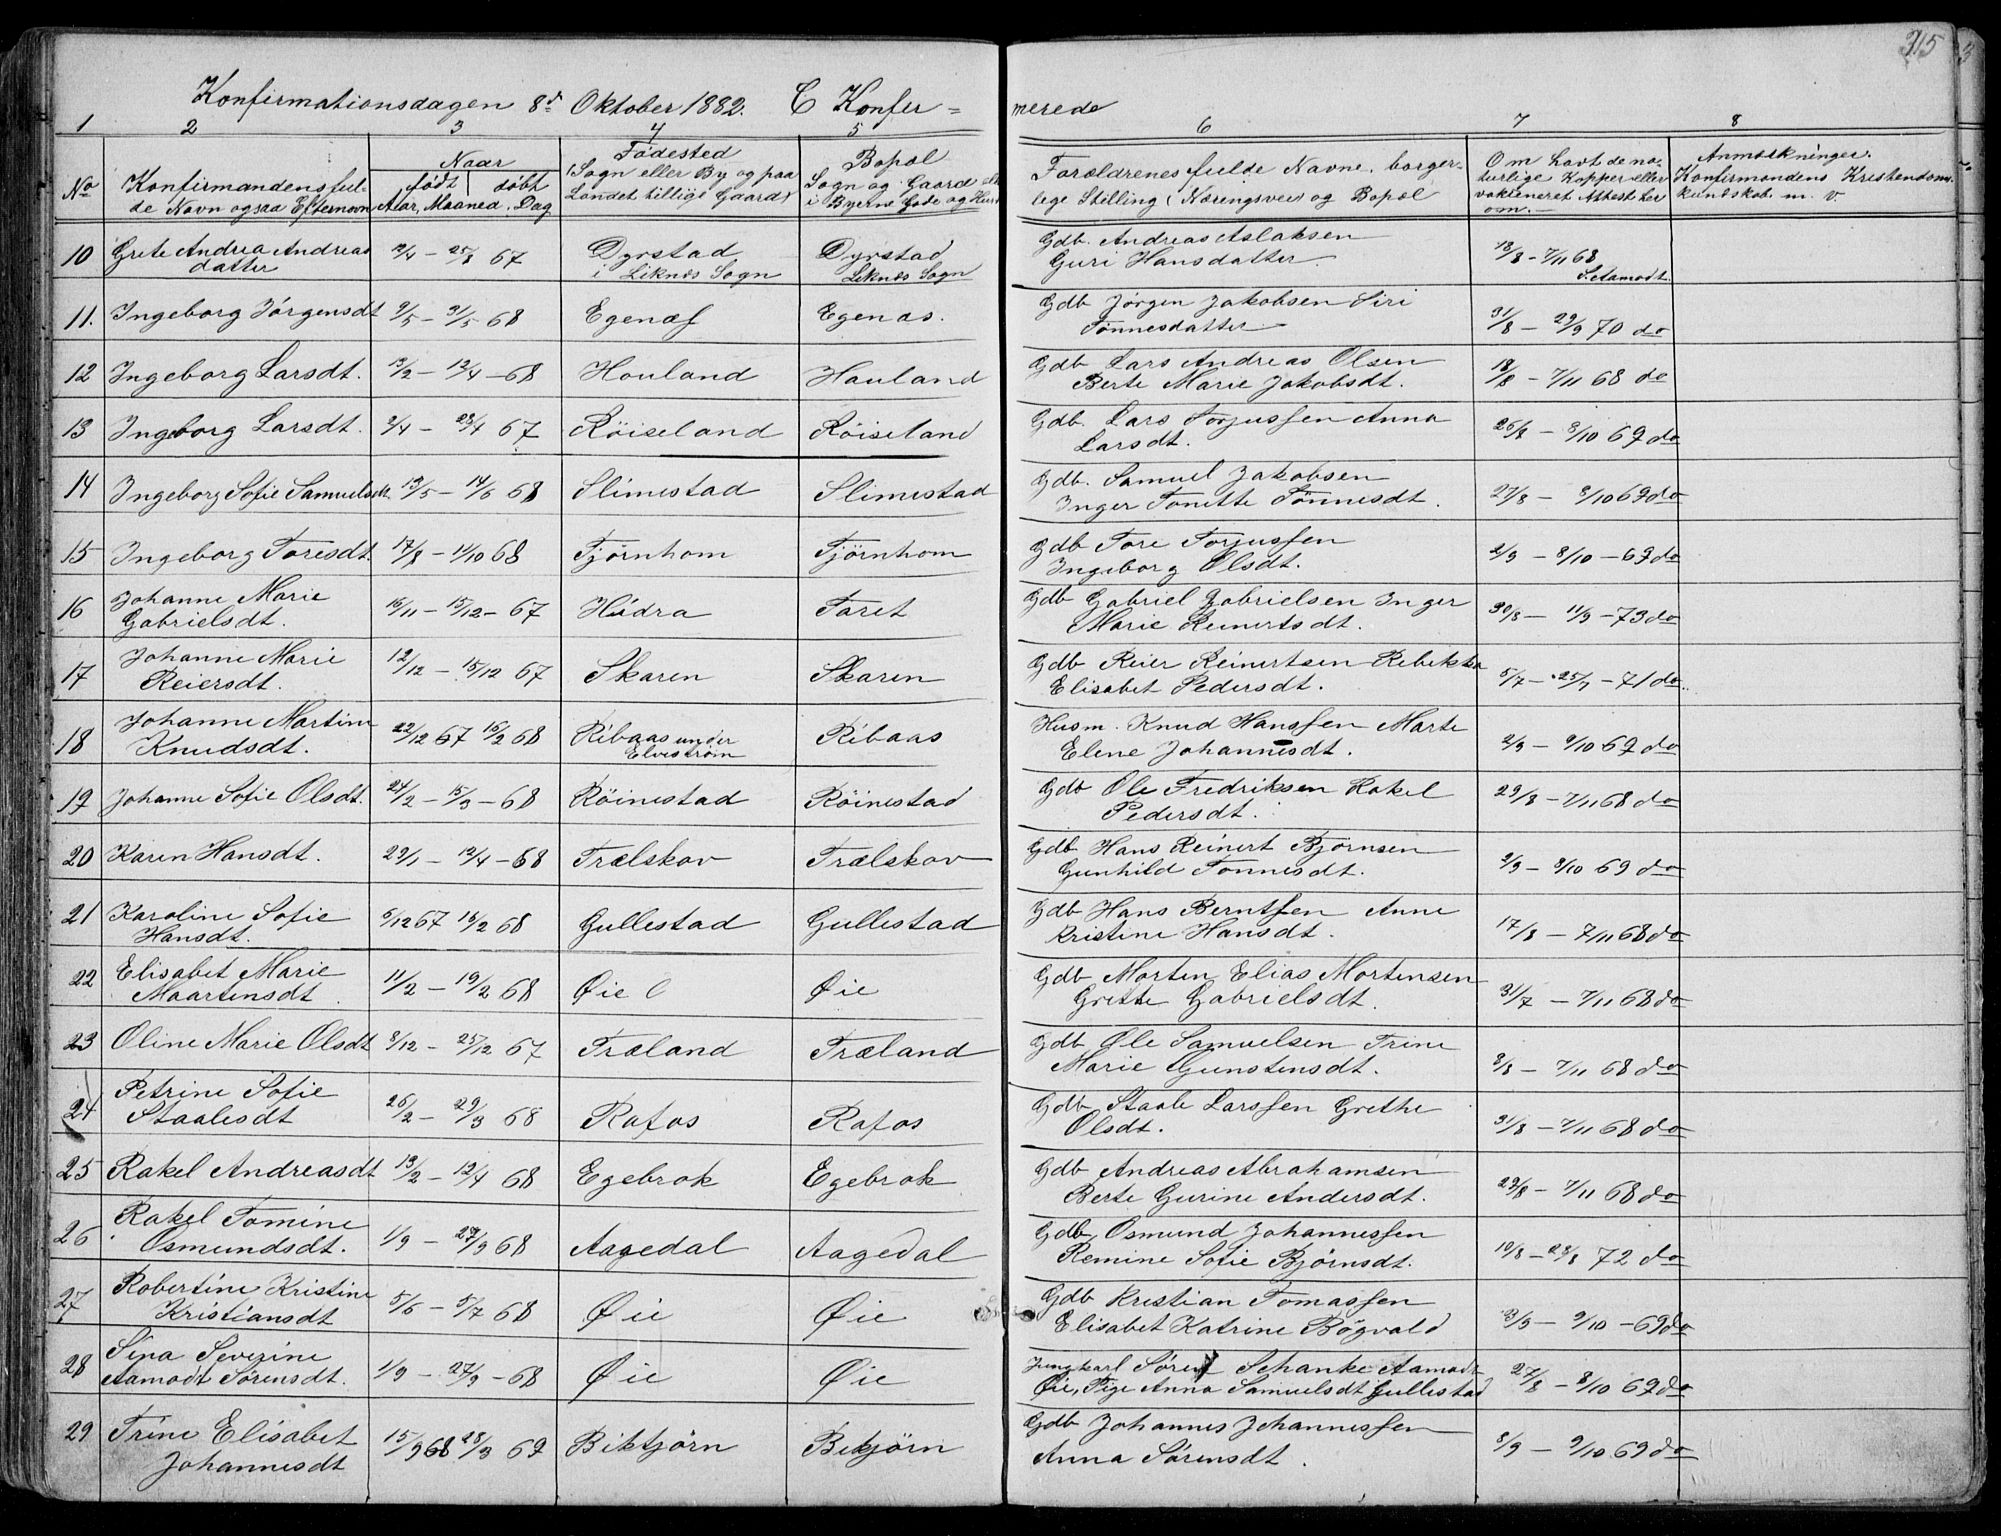 315
Konfirmationsdagen 8de Oktober 1882. C Konfir=merede
1 2 3 4 5 6 7 8
No
Konfirmandens fulde Navn ogsaa Efternavn
Naar
født | døbt
Aar, Maaned, Dag
Fødested
(Sogn eller By og paa Landet tillige Gaard)
Bopæl
Sogn og Gaard
i Byerne Gade og Hus
Forældrenes fulde Navne, borgerlige Stilling (Næringsvei) og Bopæl
Om havt de naturlige Kopper eller vakcineret Attest herom.
Anmærkninger. Konfirmandens Kristendomskundskab m. v.
10 Grete Andrea Andreasdatter 12/4 – 25/8 67 Dyrstad i Liknes Sogn Dyrstad Liknes Sogn Gdb. Andreas Aslaksen Guri Hansdatter 18/8 – 7/11 68 S. Aamodt.
11. Ingeborg Jörgensdt 9/5 – 31/5 68 Egenæs Egenæs. Gdb Jørgen Jakobsen Siri Tønnesdatter 31/8 – 29/9 70 do
12 Ingeborg Larsdt. 13/2 – 13/4 – 68 Houland Hauland Gdb Lars Andreas Olsen Berte Marie Jakobsdt. 18/8 – 7/11 68 do
13 Ingeborg Larsdt. 2/4 – 28/4 67 Röiseland Röiseland Gdb. Lars Torjussen Anna Larsdt. 26/8 – 8/10 69 do
14 Ingeborg Sofie Samuelsdt. 13/5 – 14/6 68 Slimestad Slimestad Gdb. Samuel Jakobsen Inger Tonette Tönnesdt. 27/8 – 8/10 69 do
15 Ingeborg Toresdt. 17/8 – 11/10 68 Tjörnhom Tjörnhom Gdb Tore Torjussen Ingeborg Olsdt. 2/9 – 8/10 – 69 do
16 Johanne Marie Gabrielsdt. 16/11 – 15/12 – 67 Hidra Faret Gdb Gabriel Gabrielsen Inger Marie Reinertsdt. 30/8 – 11/9 – 73 do
17 Johanne Marie Reiersdt. 12/12 – 15/12 67 Skaren Skaren Gdb Reier Reinertsen Rebekka Elisabet Pedersdt. 5/7 – 25/7 – 71 do
18 Johanne Martine Knudsdt. 22/12 67 16/2 68 Ribaas under Elvestrøm Ribaas Husm. Knud Hanssen Marte Elene Johannesdt. 2/9 – 9/10 69 do
19 Johanne Sofie Olsdt. 24/2 – 15/3 – 68 Röinestad Röinestad Gdb Ole Fredriksen Rakel Pedersdt. 29/8 – 7/11 68 do
20 Karen Hansdt. 29/1 – 12/4 – 68 Trælskov Trælskov Gdb Hans Reinert Bjørnsen Gunhild Tønnesdt. 2/9 – 8/10 69 do
21 Karoline Sofie Hansdt. 6/12 67 16/2 68 Gullestad Gullestad Gdb Hans Berntsen Anne Kristine Hansdt. 17/8 – 7/11 68 do
22 Elisabet Marie Maartensdt. 11/2 – 19/2 68 Øie Øie Gdb Morten Elias Mortensen Grette Gabrielsdt. 31/7 – 7/11 68 do
23 Oline Marie Olsdt 8/12 – 25/12 67 Træland Træland Gdb Ole Samuelsen Trine Marie Gunstensdt. 3/8 – 7/11 68 do
24 Petrine Sofie Staalesdt 26/2 – 29/3 68 Rafos Rafos Gdb Staale Larssen Grethe Olsdt. 31/8 – 7/11 68 do
25 Rakel Andreasdt 13/2 – 12/4 68 Egebrok Egebrok Gdb Andreas Abrahamsen Berte Gurine Andersdt. 29/8 – 7/11 68 do
26 Rakel Tomine Osmundsdt. 1/9 – 27/9 68 Aagedal Aagedal Gdb. Osmund Johannessen Remine Sofie Bjørnsdt. 10/8 – 28/8 72 do
27 Robertine Kristine Kristiansdt 5/6 – 5/7 68 Øie Øie Gdb Kristian Tomassen Elisabet Katrine Bøgvald 3/9 – 9/10 – 69 do
28 Sina Severine Aamodt Sörensdt. 1/9 – 27/9 – 68 Øie Øie Ungkarl Sören Schanke Aamodt Øie, Pige Anna Samuelsdt Gullestad 27/8 – 8/10 69 do
29 Trine Elisabet Johannesdt 15/9 68 28/3 69 Biktjörn Biktjörn Gdb Johannes Johannessen Anna Sörensdt. 8/9 – 9/10 69 do